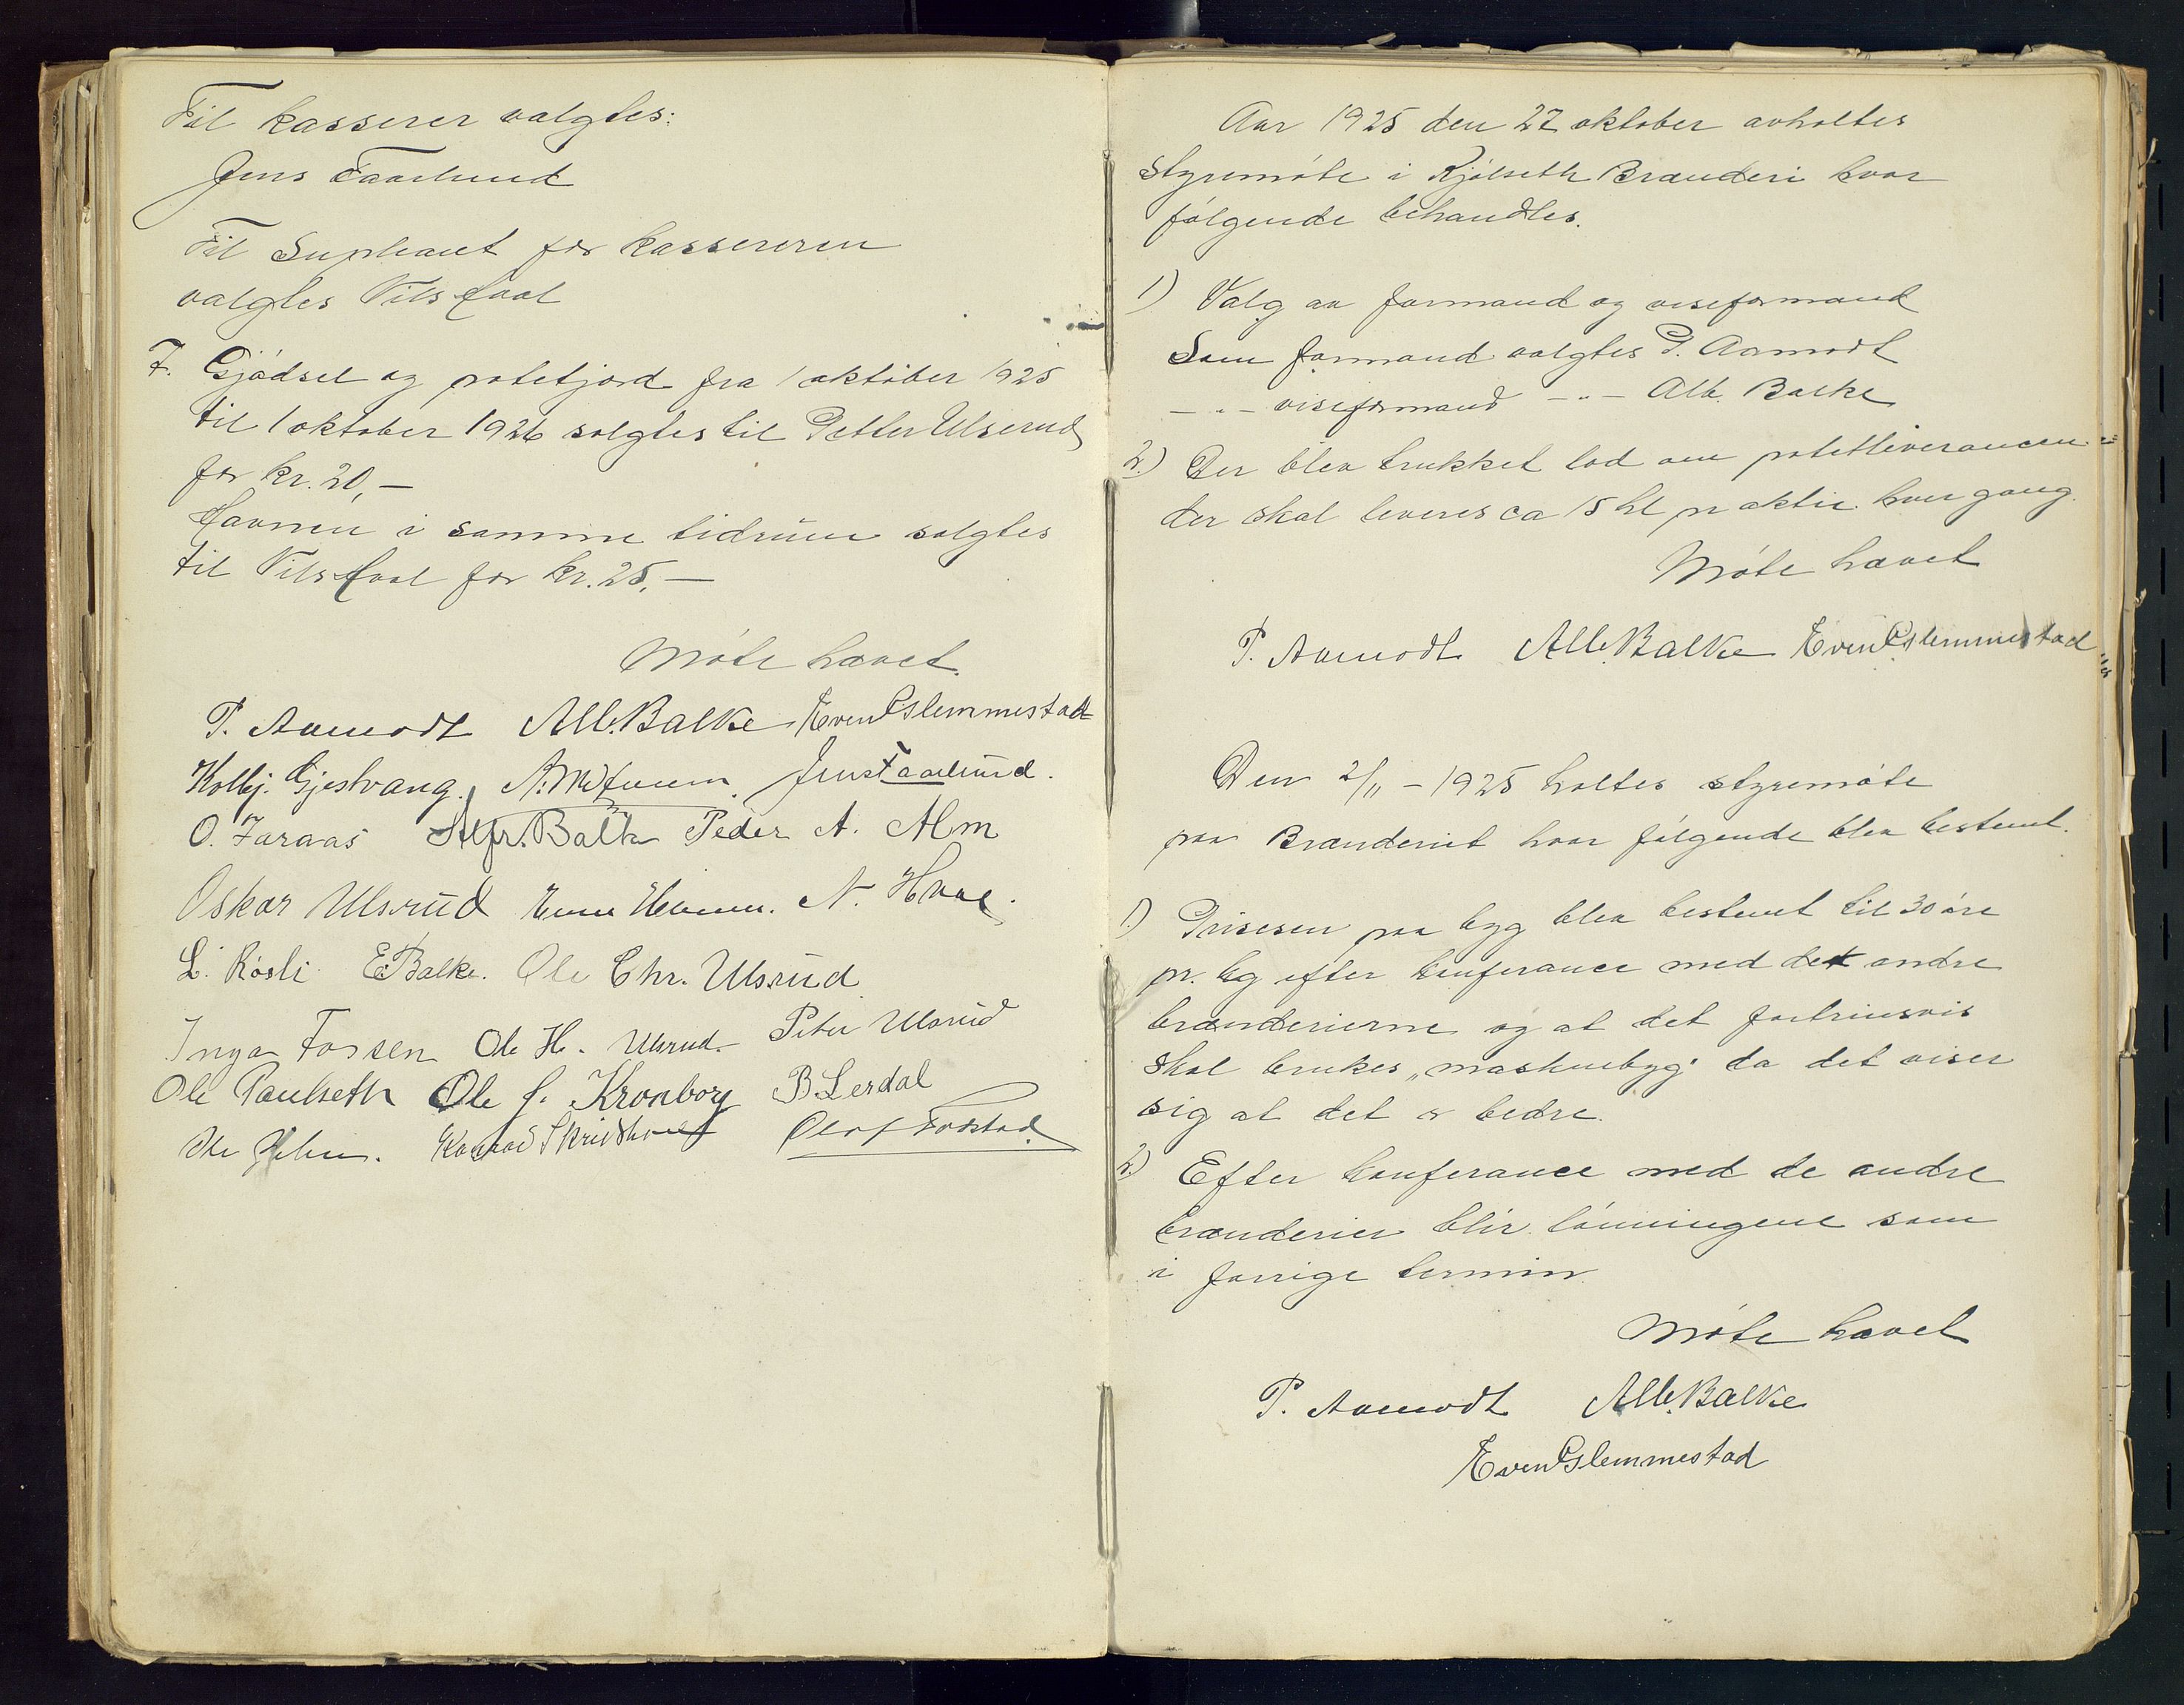 Til kasserer valgtes:
Jens Faarlund
Til Supleant for kassereren
valgtes Nils Hval
7. Gjødsel og potetjord fra 1 oktober 1925
til 1 oktober 1926 solgtes til Petter Ulserud
for kr. 20,—
Havnen i samme tidrum solgtes
til Nils Hval for kr. 25,—
Møte hævet.
P. Aamodt Alb. Balke Even Gslemmestad
Kolbj. Gjestvang. Jens Faarlund.
O. Faraas Alfr. Balke Peder A. Alm
Oskar Ulsrud N. Hval.
L. Røsli E. Balke. Ole Chr. Ulsrud
Inga Fossen Ole H. Ulsrud. Peter Ulsrud
Ole Paulseth Ole J. Kronborg B. Lerdal
Ole Konrad Olaf
Aar 1925 den 27 oktober avholtes
styremøte i Kjølseth Brænderi hvor
følgende behandles.
1) Valg av formand og viseformand
Som formand valgtes P. Aamodt
— " — viseformand — " — Alb. Balke
2.) Der blev trukket lod om potetleverancen
der skal leveres ca 15 hl pr aktie hver gang.
Møte hævet
P. Aamodt Alb. Balke Even Gslemmestad
Den 2/11 – 1925 holtes styremøte
paa Brænderiet hvor følgende blev bestemt.
1.) Prisesen paa byg blev bestemt til 30 øre
pr. kg efter konferance med det andre
brænderierne og at det fortrinsvis
skal brukes „maskinbyg" da det viser
sig at det er bedre.
2.) Efter konferance med de andre
brænderier blir lønningene som
i forrige termin
Møte hævet
P. Aamodt Alb. Balke
Even Gslemmestad